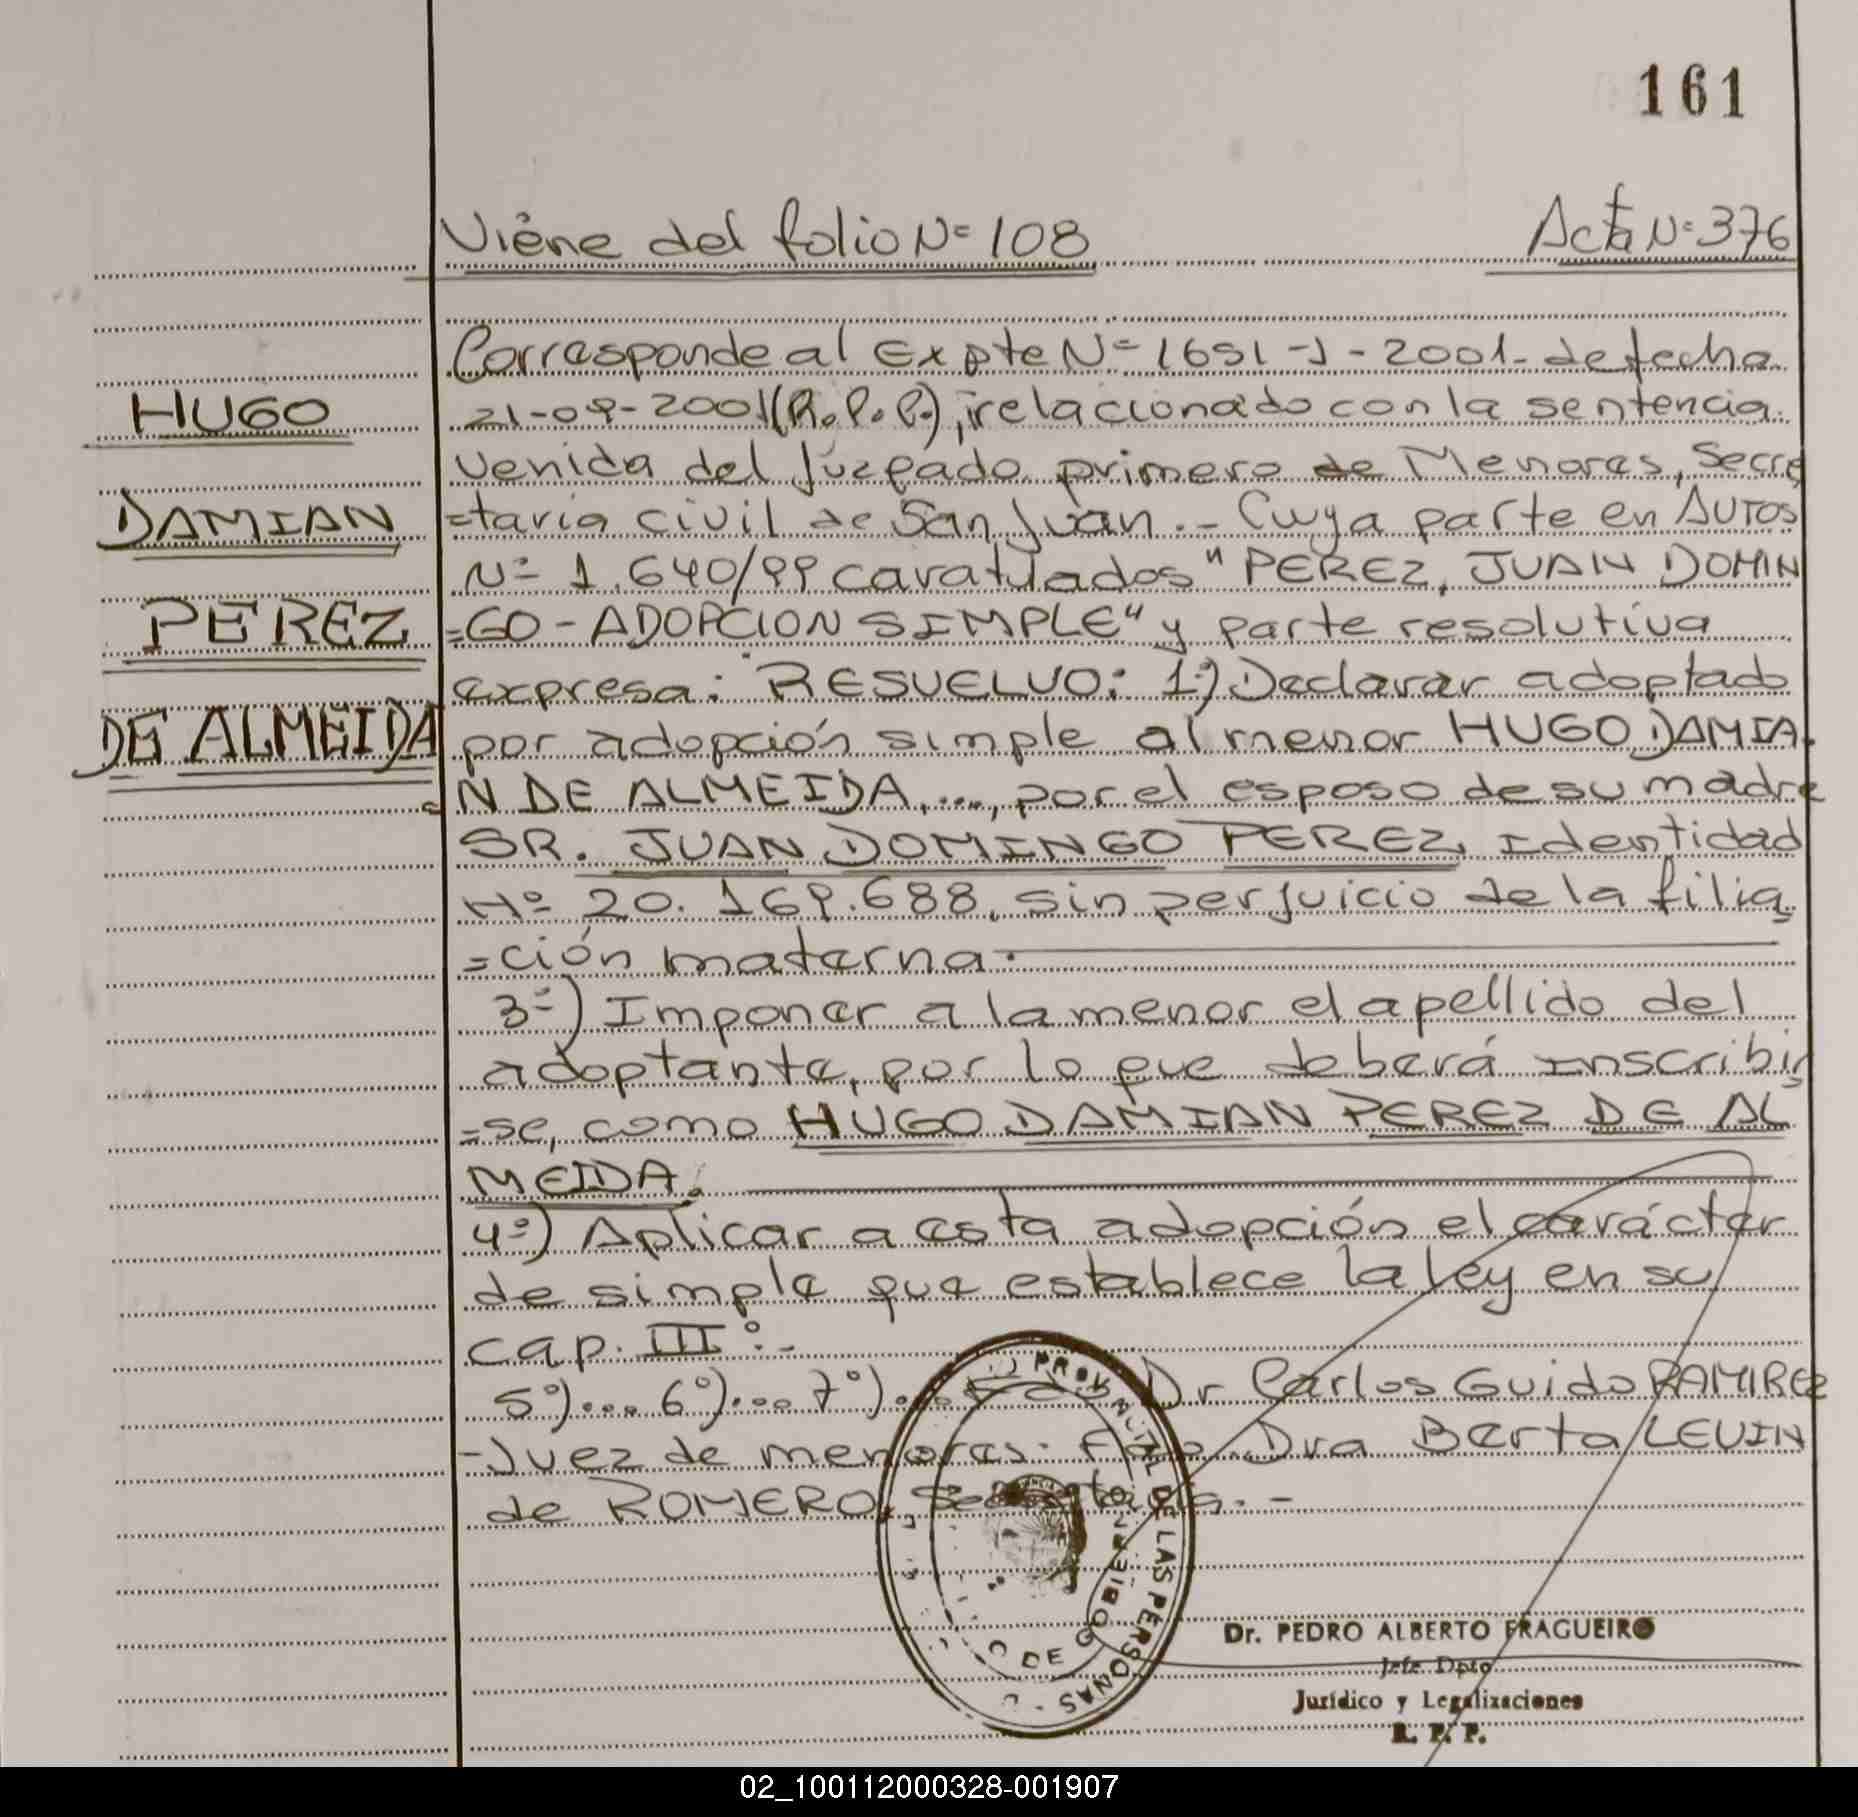 161
Viene del folio Nº 108 Acta Nº 376
Corresponde al Expte Nº 1651-J-2001- de fecha
21-09-2001(R.P.P.), relacionado con la sentencia
venida del Juzgado primero de Menores, Secre
=taria civil de San Juan.- Cuya parte en AUTOS
Nº 1.640/99 caratulados "PEREZ, JUAN DOMIN
=GO - ADOPCION SIMPLE" y parte resolutiva
expresa: "RESUELVO: 1º) Declarar adoptado
por adopción simple al menor HUGO DAMIA
=N DE ALMEIDA,..., por el esposo de su madre
SR. JUAN DOMINGO PEREZ, Identidad
Nº 20.169.688, sin perjuicio de la filia
=ción materna.
3º) Imponer a la menor el apellido del
adoptante, por lo que deberá inscribir
=se, como HUGO DAMIAN PEREZ DE AL
MEIDA.
4º) Aplicar a esta adopción el carácter
de simple que establece la ley en su
cap. III º.-
5º)... 6º)... 7º)... Fdo Dr Carlos Guido RAMIREZ
-Juez de menores. Fdo. Dra Berta LEVIN
de ROMERO, Secretaria.-
HUGO
DAMIAN
PEREZ
DE ALMEIDA
PROV DE LAS PERSONAS
DE GOBIERNO
Dr. PEDRO ALBERTO FRAGUEIRO
Jefe Dpto
Jurídico y Legalizaciones
R. P. P.
02_100112000328-001907